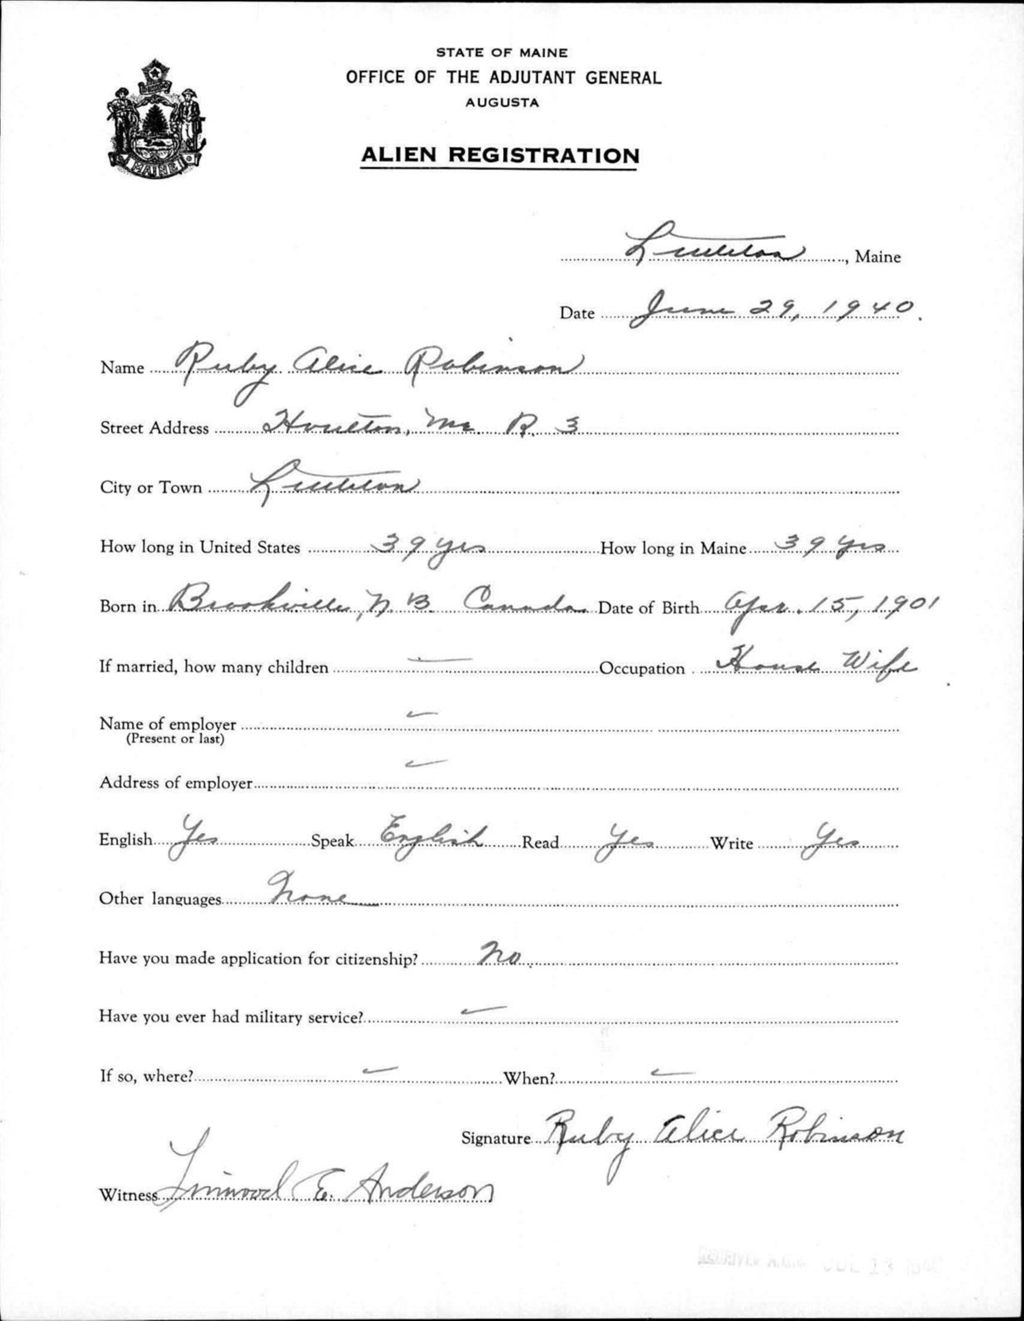 STATE OF MAINE
OFFICE OF THE ADJUTANT GENERAL
AUGUSTA
ALIEN REGISTRATION
MAINE
Littleton, Maine
Date June 29, 1940.
Name Ruby Alice Robinson
Street Address Houlton, Me. R. 3
City or Town Littleton
How long in United States 39 yrs How long in Maine 39 yrs
Born in Brookville, N. B. Canada Date of Birth Apr. 15, 1901
If married, how many children — Occupation House Wife
Name of employer
(Present or last)
Address of employer
English Yes Speak English Read Yes Write Yes
Other languages None
Have you made application for citizenship? No.
Have you ever had military service?
If so, where? When?
Signature Ruby Alice Robinson
Witness Linwood E. Anderson
RECEIVED A.G.O. JUL 13 1940